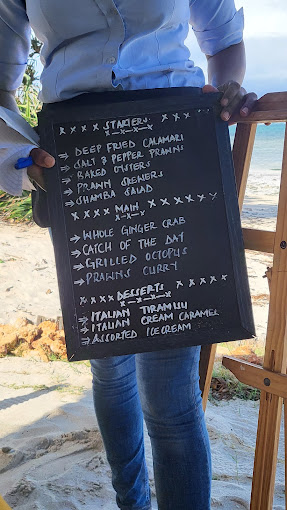 x x x x STARTERS x x x x
x-x-x-x
→ DEEP FRIED CALAMARI
→ SALT & PEPPER PRAWNS
→ BAKED OYSTERS
→ PRAWN SKEWERS
→ SHAMBA SALAD
x x x x MAIN x x x x x x
x-x-x
→ WHOLE GINGER CRAB
→ CATCH OF THE DAY
→ GRILLED OCTOPUS
→ PRAWNS CURRY
x x x x x DESSERTS x x x x
x-x-x-x
→ ITALIAN TIRAMISU
→ ITALIAN CREAM CARAMEL
→ ASSORTED ICECREAM